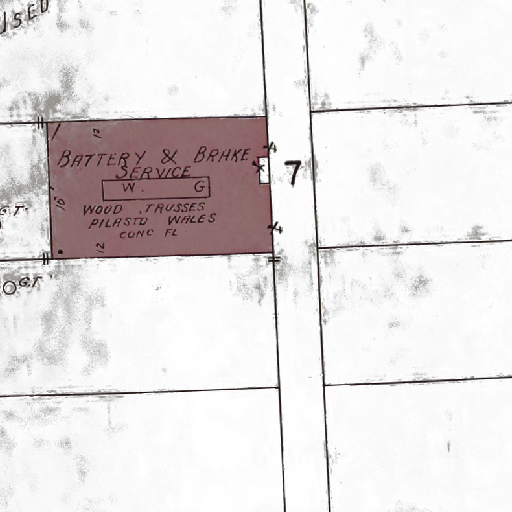 USED
12
BATTERY & BRAKE
SERVICE
W. G
WOOD TRUSSES
PILASTD WALES
CONC FL
10
12
4
4
7
G.T.
O G.T